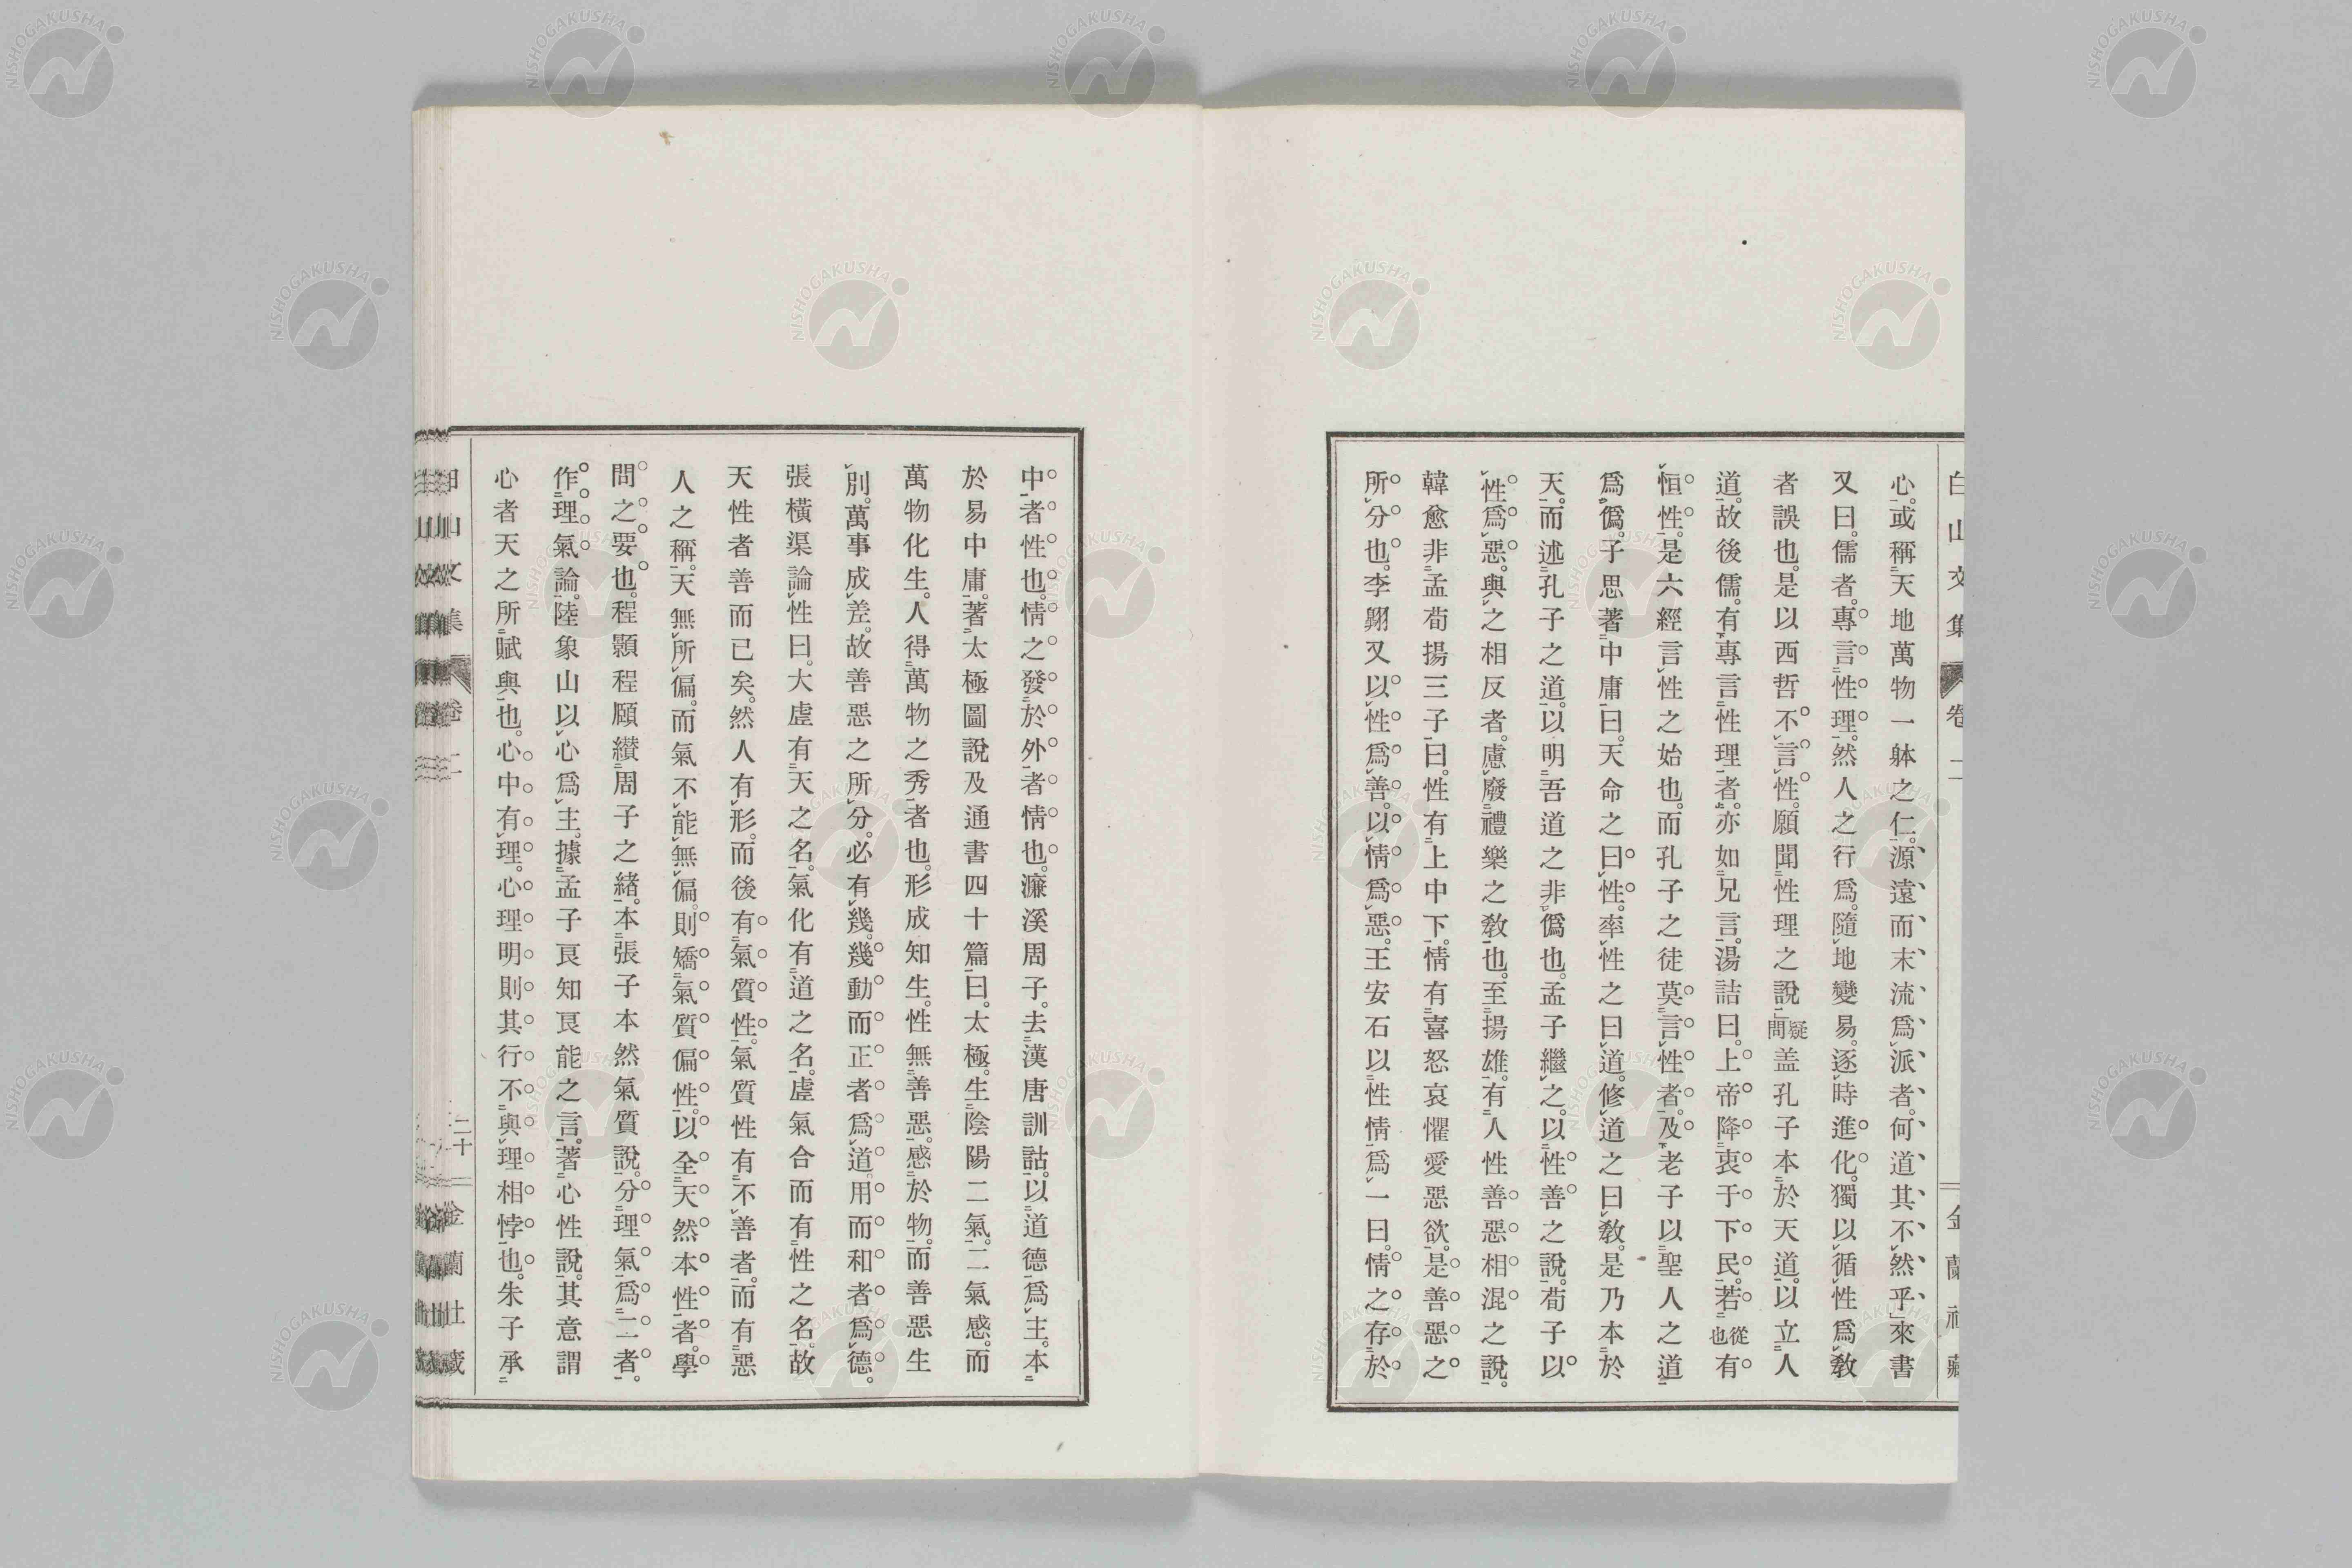 心。或稱天地萬物一躰之仁。源遠而末流爲派者。何道其不然乎」來書
又曰。儒者。專言性理。然人之行爲。隨地變易。逐時進化。獨以循性爲敎
者誤也。是以西哲不言性。願聞性理之說」疑問盖孔子本於天道。以立人
道。故後儒。有專言性理者。亦如兄言。湯誥曰。上帝降衷于下民。若從也有
恒性。是六經言性之始也。而孔子之徒莫言性者。及老子以聖人之道
爲僞。子思著中庸曰。天命之曰性。率性之曰道。修道之曰敎。是乃本於
天。而述孔子之道。以明吾道之非僞也。孟子繼之。以性善之說。荀子以
性爲惡。與之相反者。慮廢禮樂之敎也。至揚雄。有人性善惡相混之說。
韓愈非孟荀揚三子曰。性有上中下。情有喜怒哀懼愛惡欲。是善惡之
所分也。李翺又以性爲善。以情爲惡。王安石以性情爲一曰。情之存於
中者性也。情之發於外者情也。濂溪周子。去漢唐訓詁。以道德爲主。本
於易中庸。著太極圖說及通書四十篇曰。太極。生陰陽二氣。二氣感。而
萬物化生。人得萬物之秀者也。形成知生。性無善惡。感於物。而善惡生
別。萬事成差。故善惡之所分。必有幾。幾動而正者爲道。用而和者爲德。
張橫渠論性曰。大虛有天之名。氣化有道之名。虛氣合而有性之名。故
天性者善而已矣。然人有形。而後有氣質性。氣質性有不善者。而有惡
人之稱。天無所偏。而氣不能無偏。則矯氣質偏性。以全天然本性者。學
問之要也。程顥程頤纉周子之緒。本張子本然氣質說。分理氣爲二者。
作理氣論。陸象山以心爲主。據孟子良知良能之言。著心性說。其意謂
心者天之所賦與也。心中有理。心理明則其行不與理相悖也。朱子承
白山文集 卷二
金蘭社藏
山文集 卷二
二十
金蘭社藏
NISHOGAKUSHA